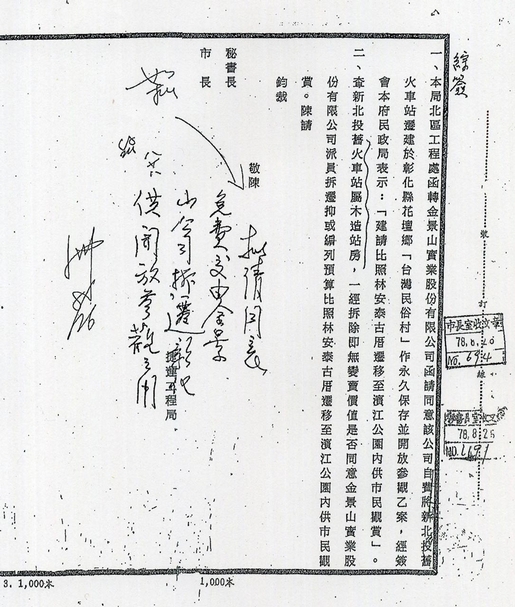 綜簽
一、本局北區工程處函轉金景山實業股份有限公司函請同意該公司自費將新北投舊
火車站遷建於彰化縣花壇鄉「台灣民俗村」作永久保存並開放參觀乙案,經簽
會本府民政局表示:「建請比照林安泰古厝遷移至濱江公園內供市民觀賞」。
二、查新北投舊火車站屬木造站房,一經拆除即無變賣價值是否同意金景山實業股
份有限公司派員拆遷抑或編列預算比照林安泰古厝遷移至濱江公園內供市民觀
賞。陳請
鈞裁
敬陳
秘書長
市長
捷運工程局
擬請同意
免費交由金景
山公司拆遷
供開放參觀之用
號
打
線
市長室收文章
78.8.26
NO.
秘書長室收文章
78.8.25
NO.
3. 1,000本
1,000本